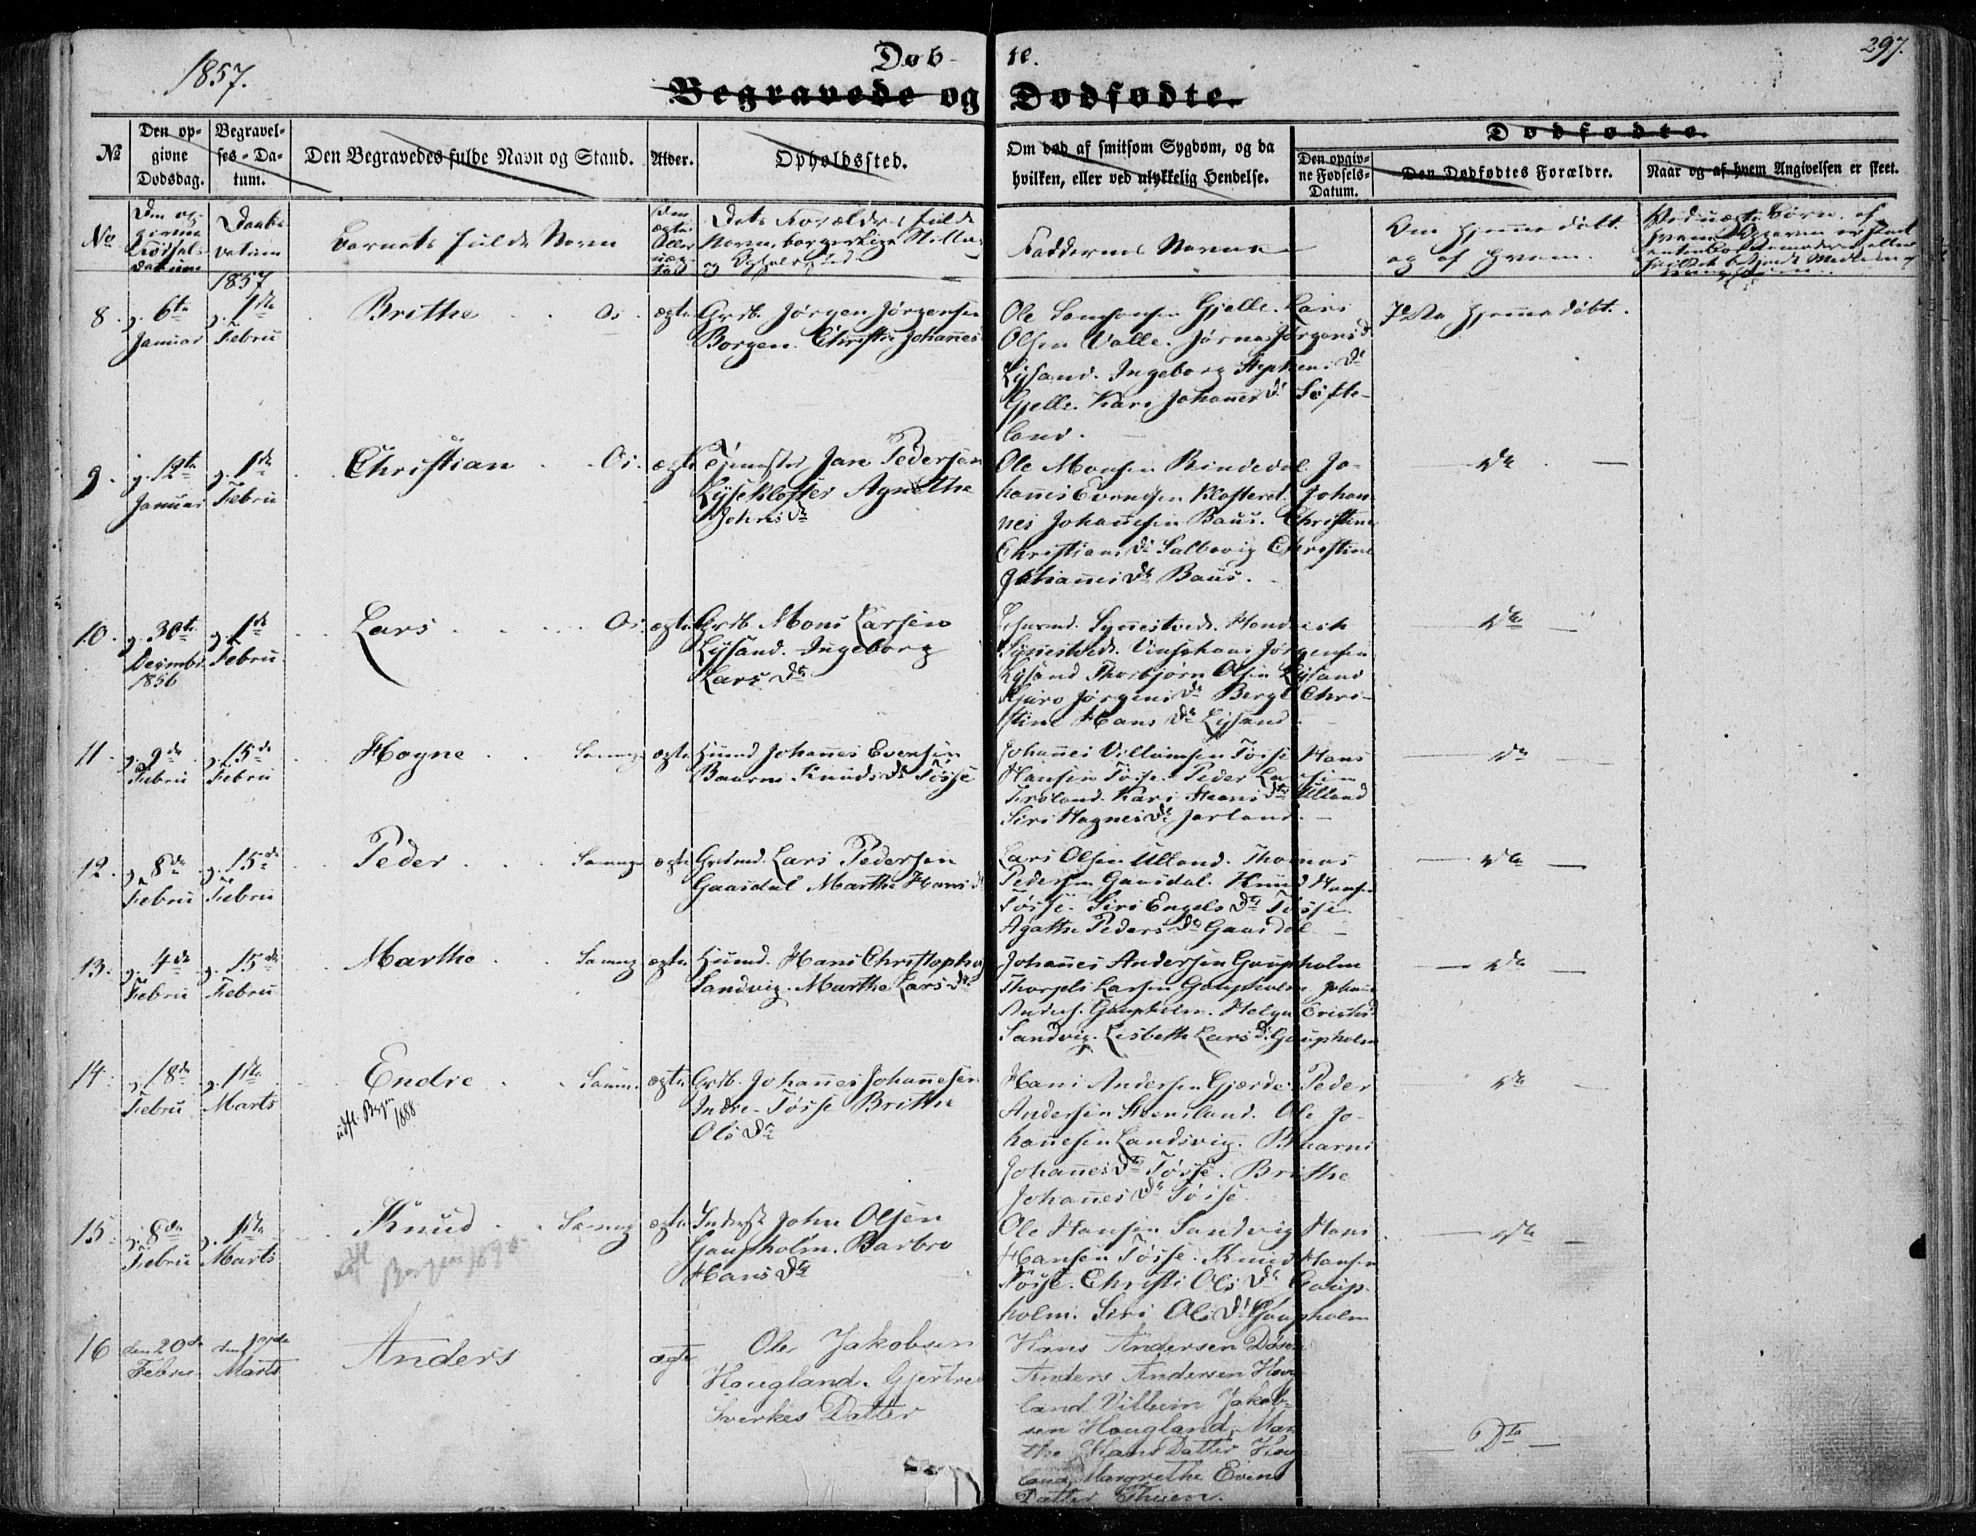 1857.
Døb- te.
297.
Begravede og Dødfødte.
№
Den op-
givne
Dødsdag.
Begravel-
ses-Da-
tum.
Den Begravedes fulde Navn og Stand.
Alder.
Opholdssted.
Om død af smitsom Sygdom, og da
hvilken, eller ved ulykkelig Hendelse.
Dødfødte.
Den opgiv-
ne Fødsels-
Datum.
Den Dødfødtes Forældre.
Naar og af hvem Angivelsen er skeet.
No
Den op-
givne
Fødsels-
datum
Daabs
datum
1857
Barnets fulde Navn
Om
ægte
eller
uæg-
te
Dets Forældres fulde
Navn, borgerlige Stilling
og Opholdssted
Faddernes Navne
Om hjemmedøbt
og af hvem.
Ved uægte Børn, af
8.
d. 6te
Januar
d. 1ste
Febru
Brithe
Os.
ægte
Grdb. Jørgen Jørgensen
Borgen. Christi Johannes
Ole Samsonsen Gjelle. Lars
Olsen Valle. Jørgensd
Lysand. Ingeborg Stephens Dr
Gjelle. Kari Johannes Dr Søfte-
land.
Ikke hjemmedøbt.
9.
d. 19te
Januar
d. 1ste
Febru
Christian
Os.
ægte
Jan Pedersen
Lysekloster Agnethe
Johns Dr
Ole Monsen Rindedal Jo-
hannes Evensen Klosteret. Johan-
nes Johannesen Baus. Christine
Christians Dr Salbovig Christine
Johannes Dr Baus.
Do
10.
d. 30te
Decembr
1856
d. 1ste
Febru
Lars
Os.
ægte
Grdb. Mons Larsen
Lysand. Ingeborg
Lars Dr
Synestvedt. Hendrich
Synestvedt. Jørgensen
Lysand Thorbjørn Olsen Lysand
Jørgens Dr Berge Chri-
stine Hans Dr Lysand
Do
11.
d. 9de
Febru
d. 15de
Febru
Hogne
Samng
ægte
Huusmd Johannes Evensen
Baarni Knuds Dr Tøsse
Johannes Villumsen Tøsse Hans
Hansen Tøsse. Peder Larsen
Frøland. Kari Hans Dr Ulland
Siri Hagnes Dr Jarland.
Do
12.
d. 8de
Febru
d. 15de
Febru
Peder
Samng
ægte
Grdmd. Lars Pedersen
Gaasdal Marthe Hans Dr
Lars Olsen Ulland. Thomas
Pedersen Gaasdal. Knud Hansen
Tøsse. Siri Engels Dr Tøsse
Agathe Peders Dr Gaasdal
Do
13.
d. 4de
Febru
d. 15de
Febru
Marthe
Samng
ægte
Huusmd. Hans Christophs
Sandvig. Marthe Lars Dr
Johannes Andersen Goupholm
Thorgils Larsen Goupholm Johans
Anders. Goupholm. Helga
Sandvig. Lisbeth Lars Dr Goupholm
Do
14.
d. 18de
Febru
d. 1ste
Marts
Endre
udfl. Bergen
1888
Samn.
ægte
Grdb. Johannes Johannesen
Indre-Tøsse Brithe
Ols Dr
Hans Andersen Gjærde. Peder
Andersen Steensland. Ole Jo-
hannesen Landsvig. Baarni
Johannes Dr Tøsse. Brithe
Johannes Dr Tøsse
Do
15.
d. 8de
Febru
d. 1ste
Marts
Knud
udfl
Bergen
Samng
ægte
Inderst John Olsen
Goupholm. Barbro
Hans Dr
Ole Hansen Sandvig Hans
Hansen Tøsse. Knud Hansen
Tøsse. Christi Ols Dr Goup-
holm. Siri Ols Dr Goupholm
Do
16
den 20de
Februe
den 1ste
Marts
Anders
ægte
Ole Jakobsen
Hougland. Gjertrud
Sverkes Datter
Hans Andersen Døsen
Anders Andersen Houg
land Villum Jakob-
sen Hougland, Mar
the Hans Datter Houg
land Margrethe Evens
Datter Thuen.
Dto